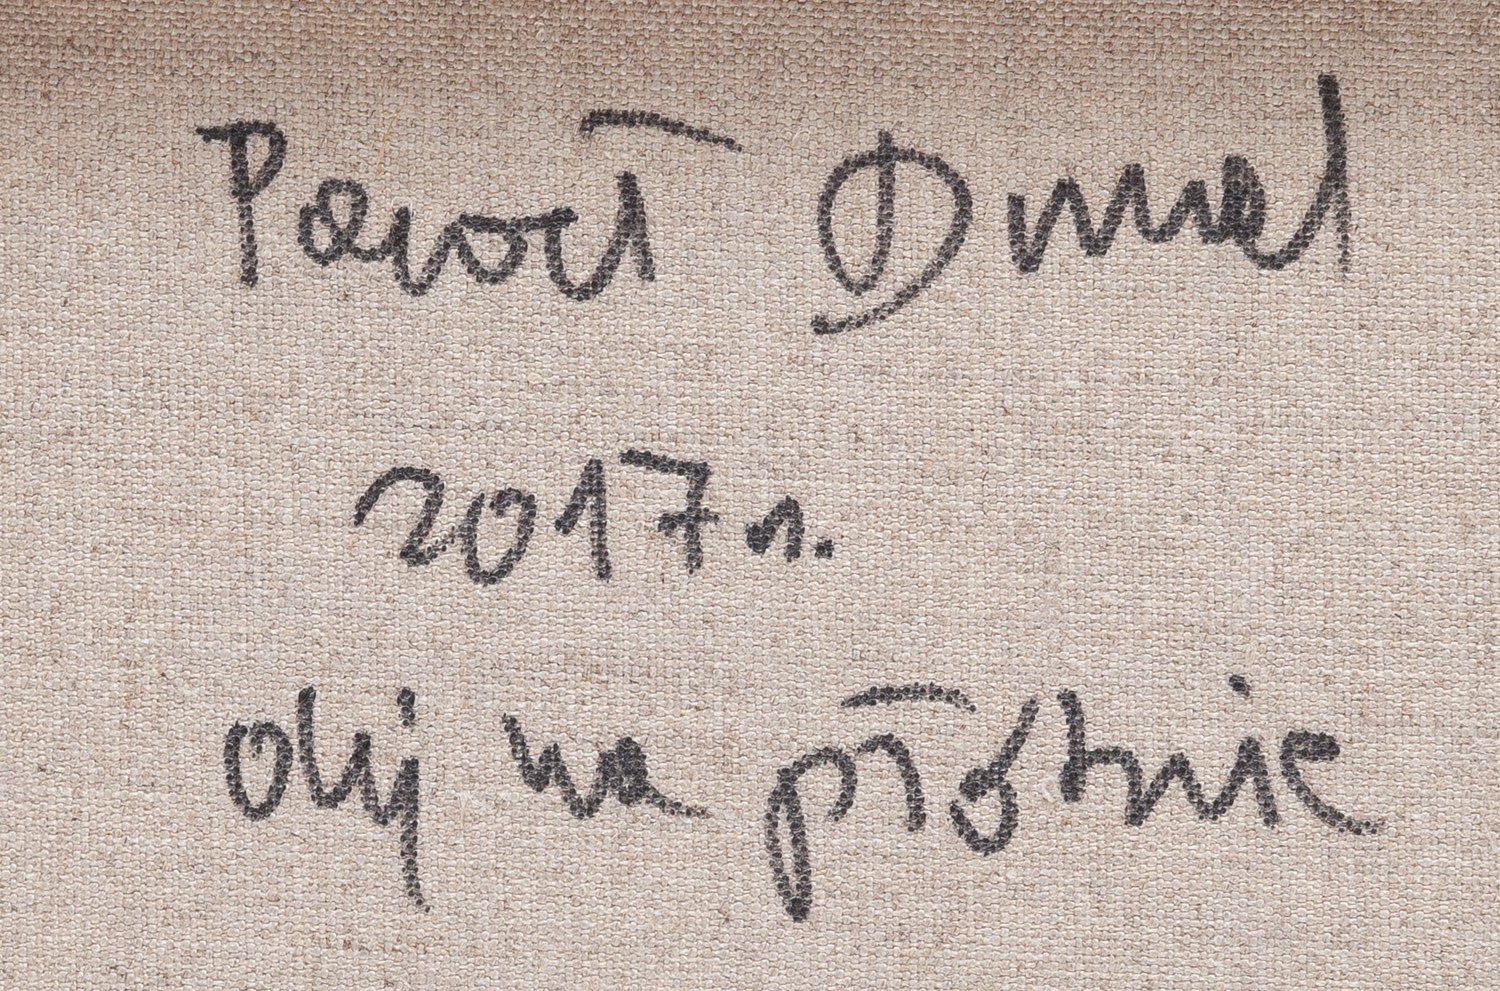 Paweł Dmal
2017 r.
olej na płótnie